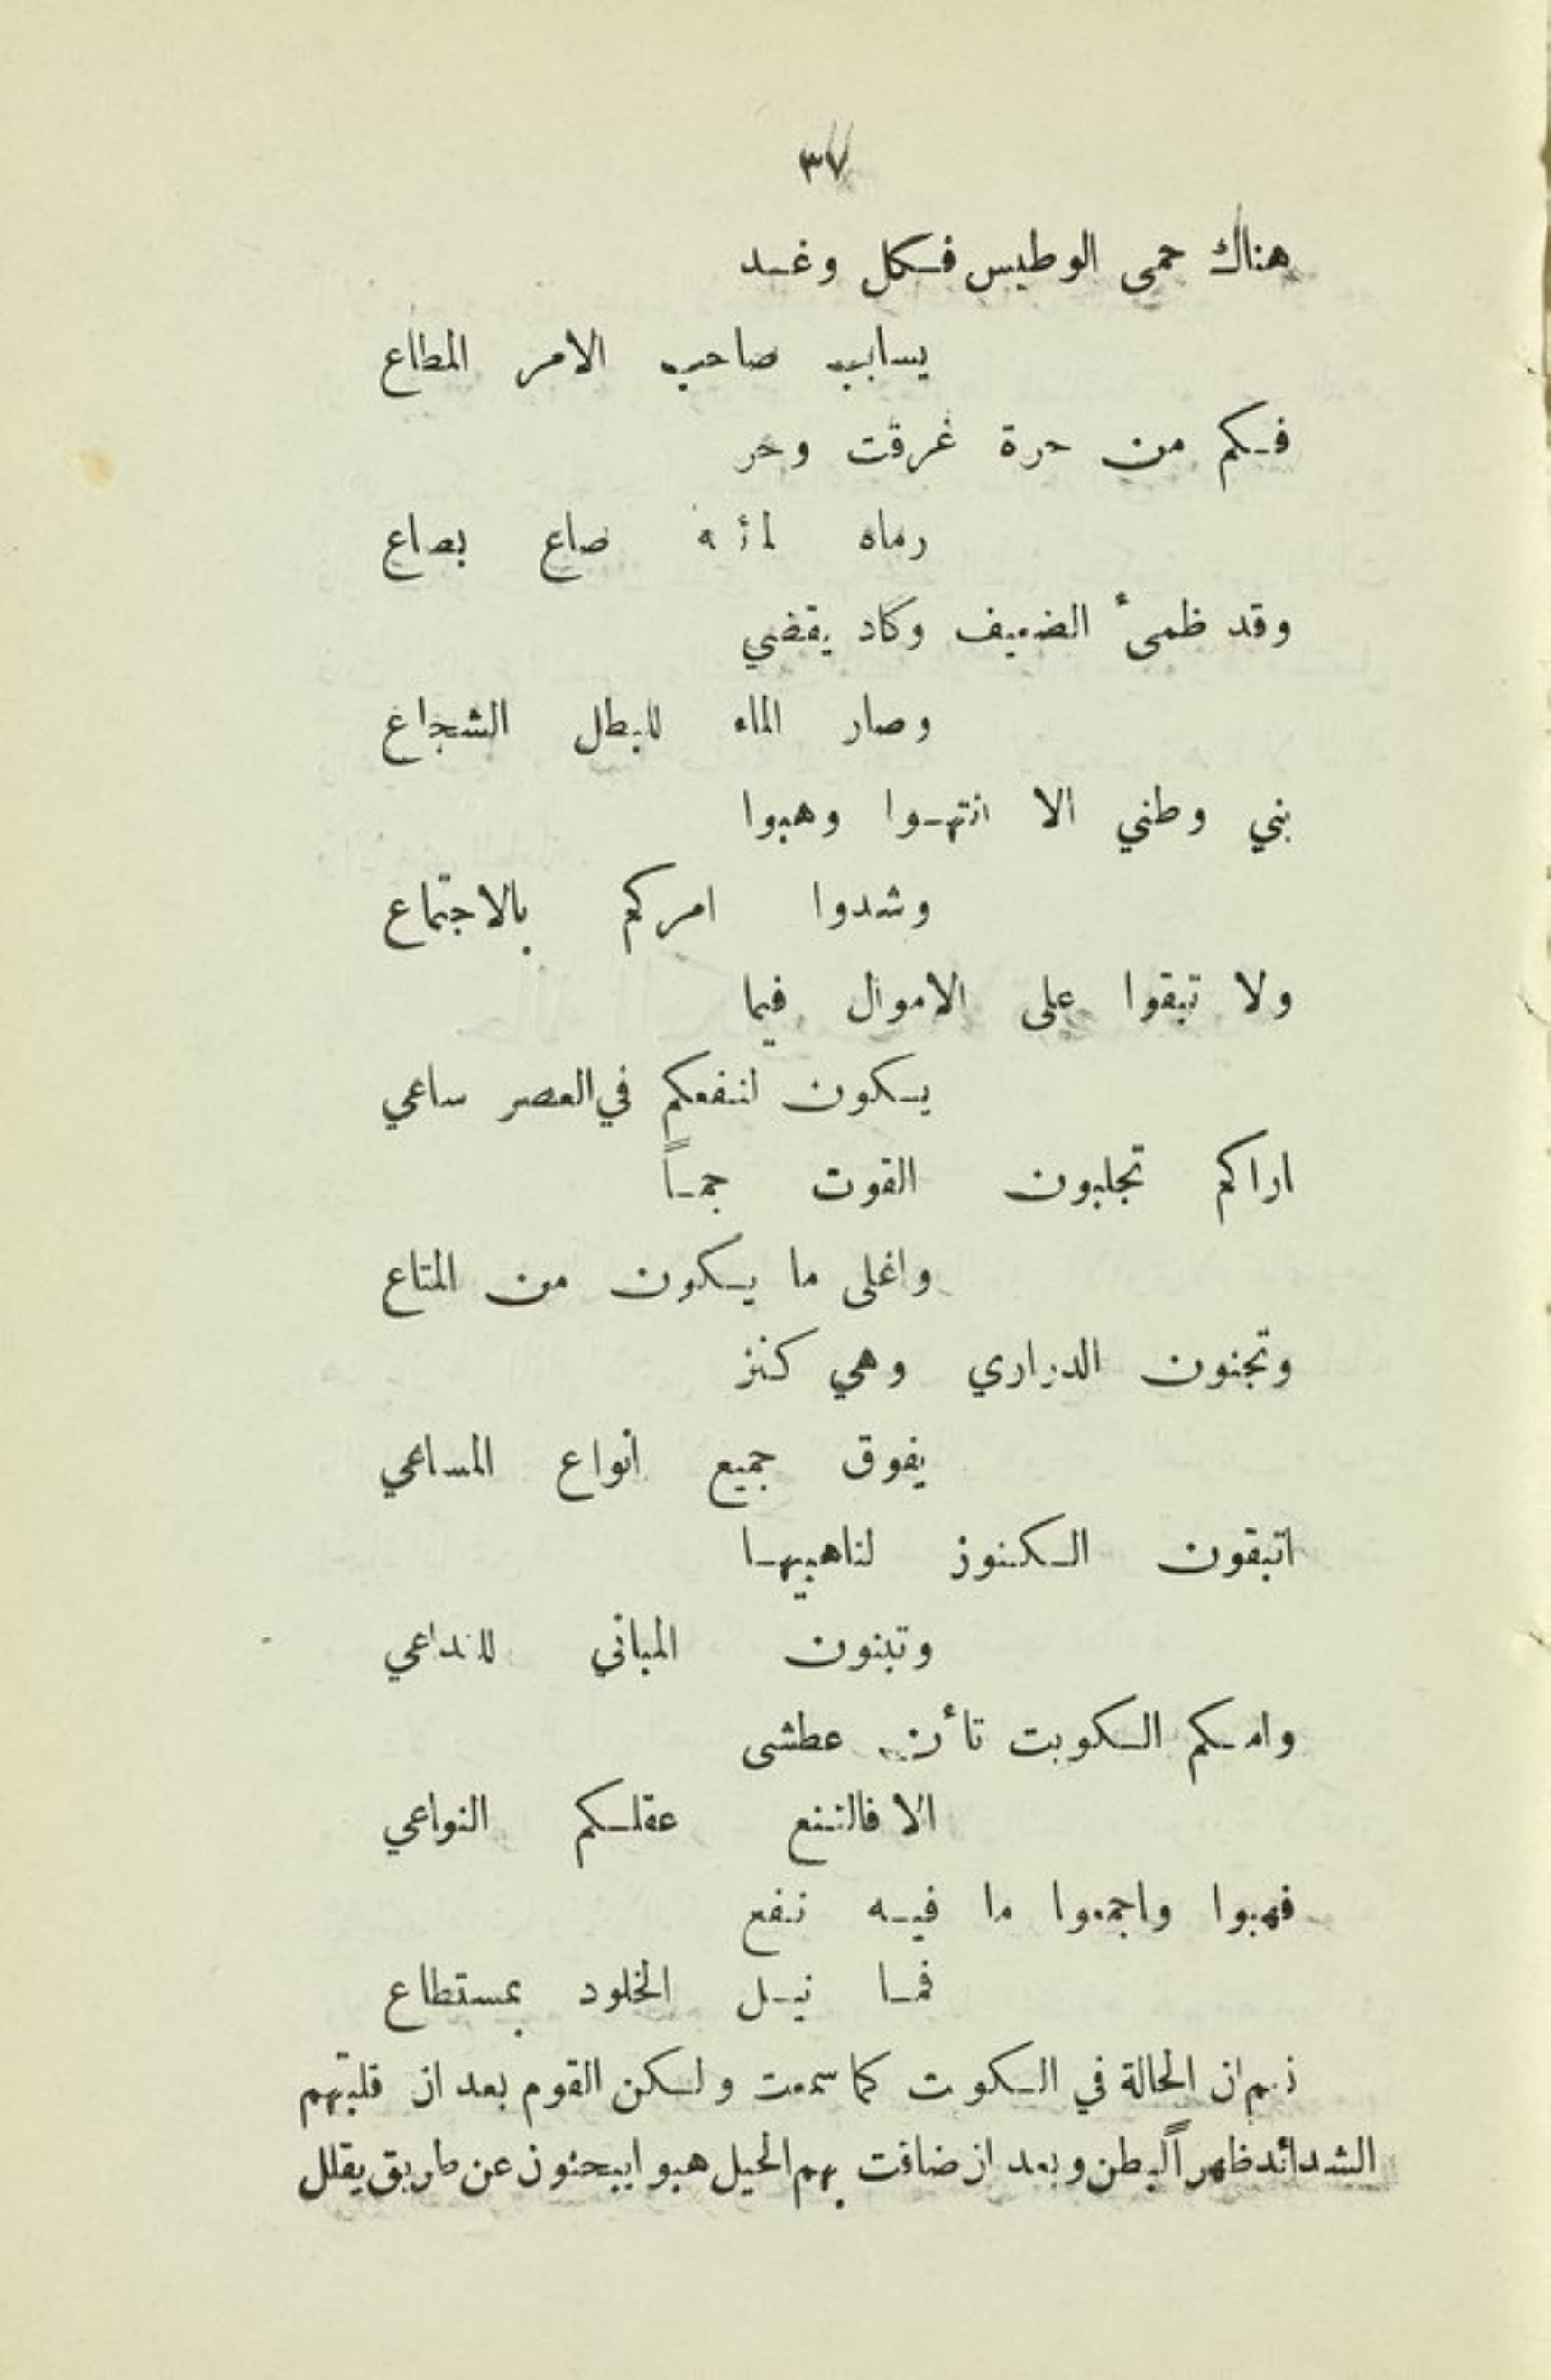 ٣٧
هناك حمى الوطيس فكل وغد
يسابب صاحب الامر المطاع
فكم من حرة غرقت وحر
رماه صاع بصاع
وقد ظمىء الضعيف وكاد يقضي
وصار الماء للبطل الشجاع
بني وطني الا انتهوا وهبوا
وشدوا امركم بالاجتماع
ولا تبقوا على الاموال فيما
يكون لنفعكم في العصر ساعي
اراكم تجلبون القوت جماً
واغلى ما يكون من المتاع
وتجنون الدراري وهي كنز
يفوق جميع انواع المساعي
اتبقون الكنوز لناهبيها
وتبنون المباني للتداعي
وامكم الكويت تأن عطشى
الا فالتنع عقلكم النواعي
فهبوا واجمعوا ما فيه نفع
فما نيل الخلود بمستطاع
نعم ان الحالة في الكوت كما سمعت ولكن القوم بعد ان قلبتهم
الشدائد ظهراً لبطن وبعد ان ضاقت بهم الحيل هبوا يبحثون عن طريق يقلل